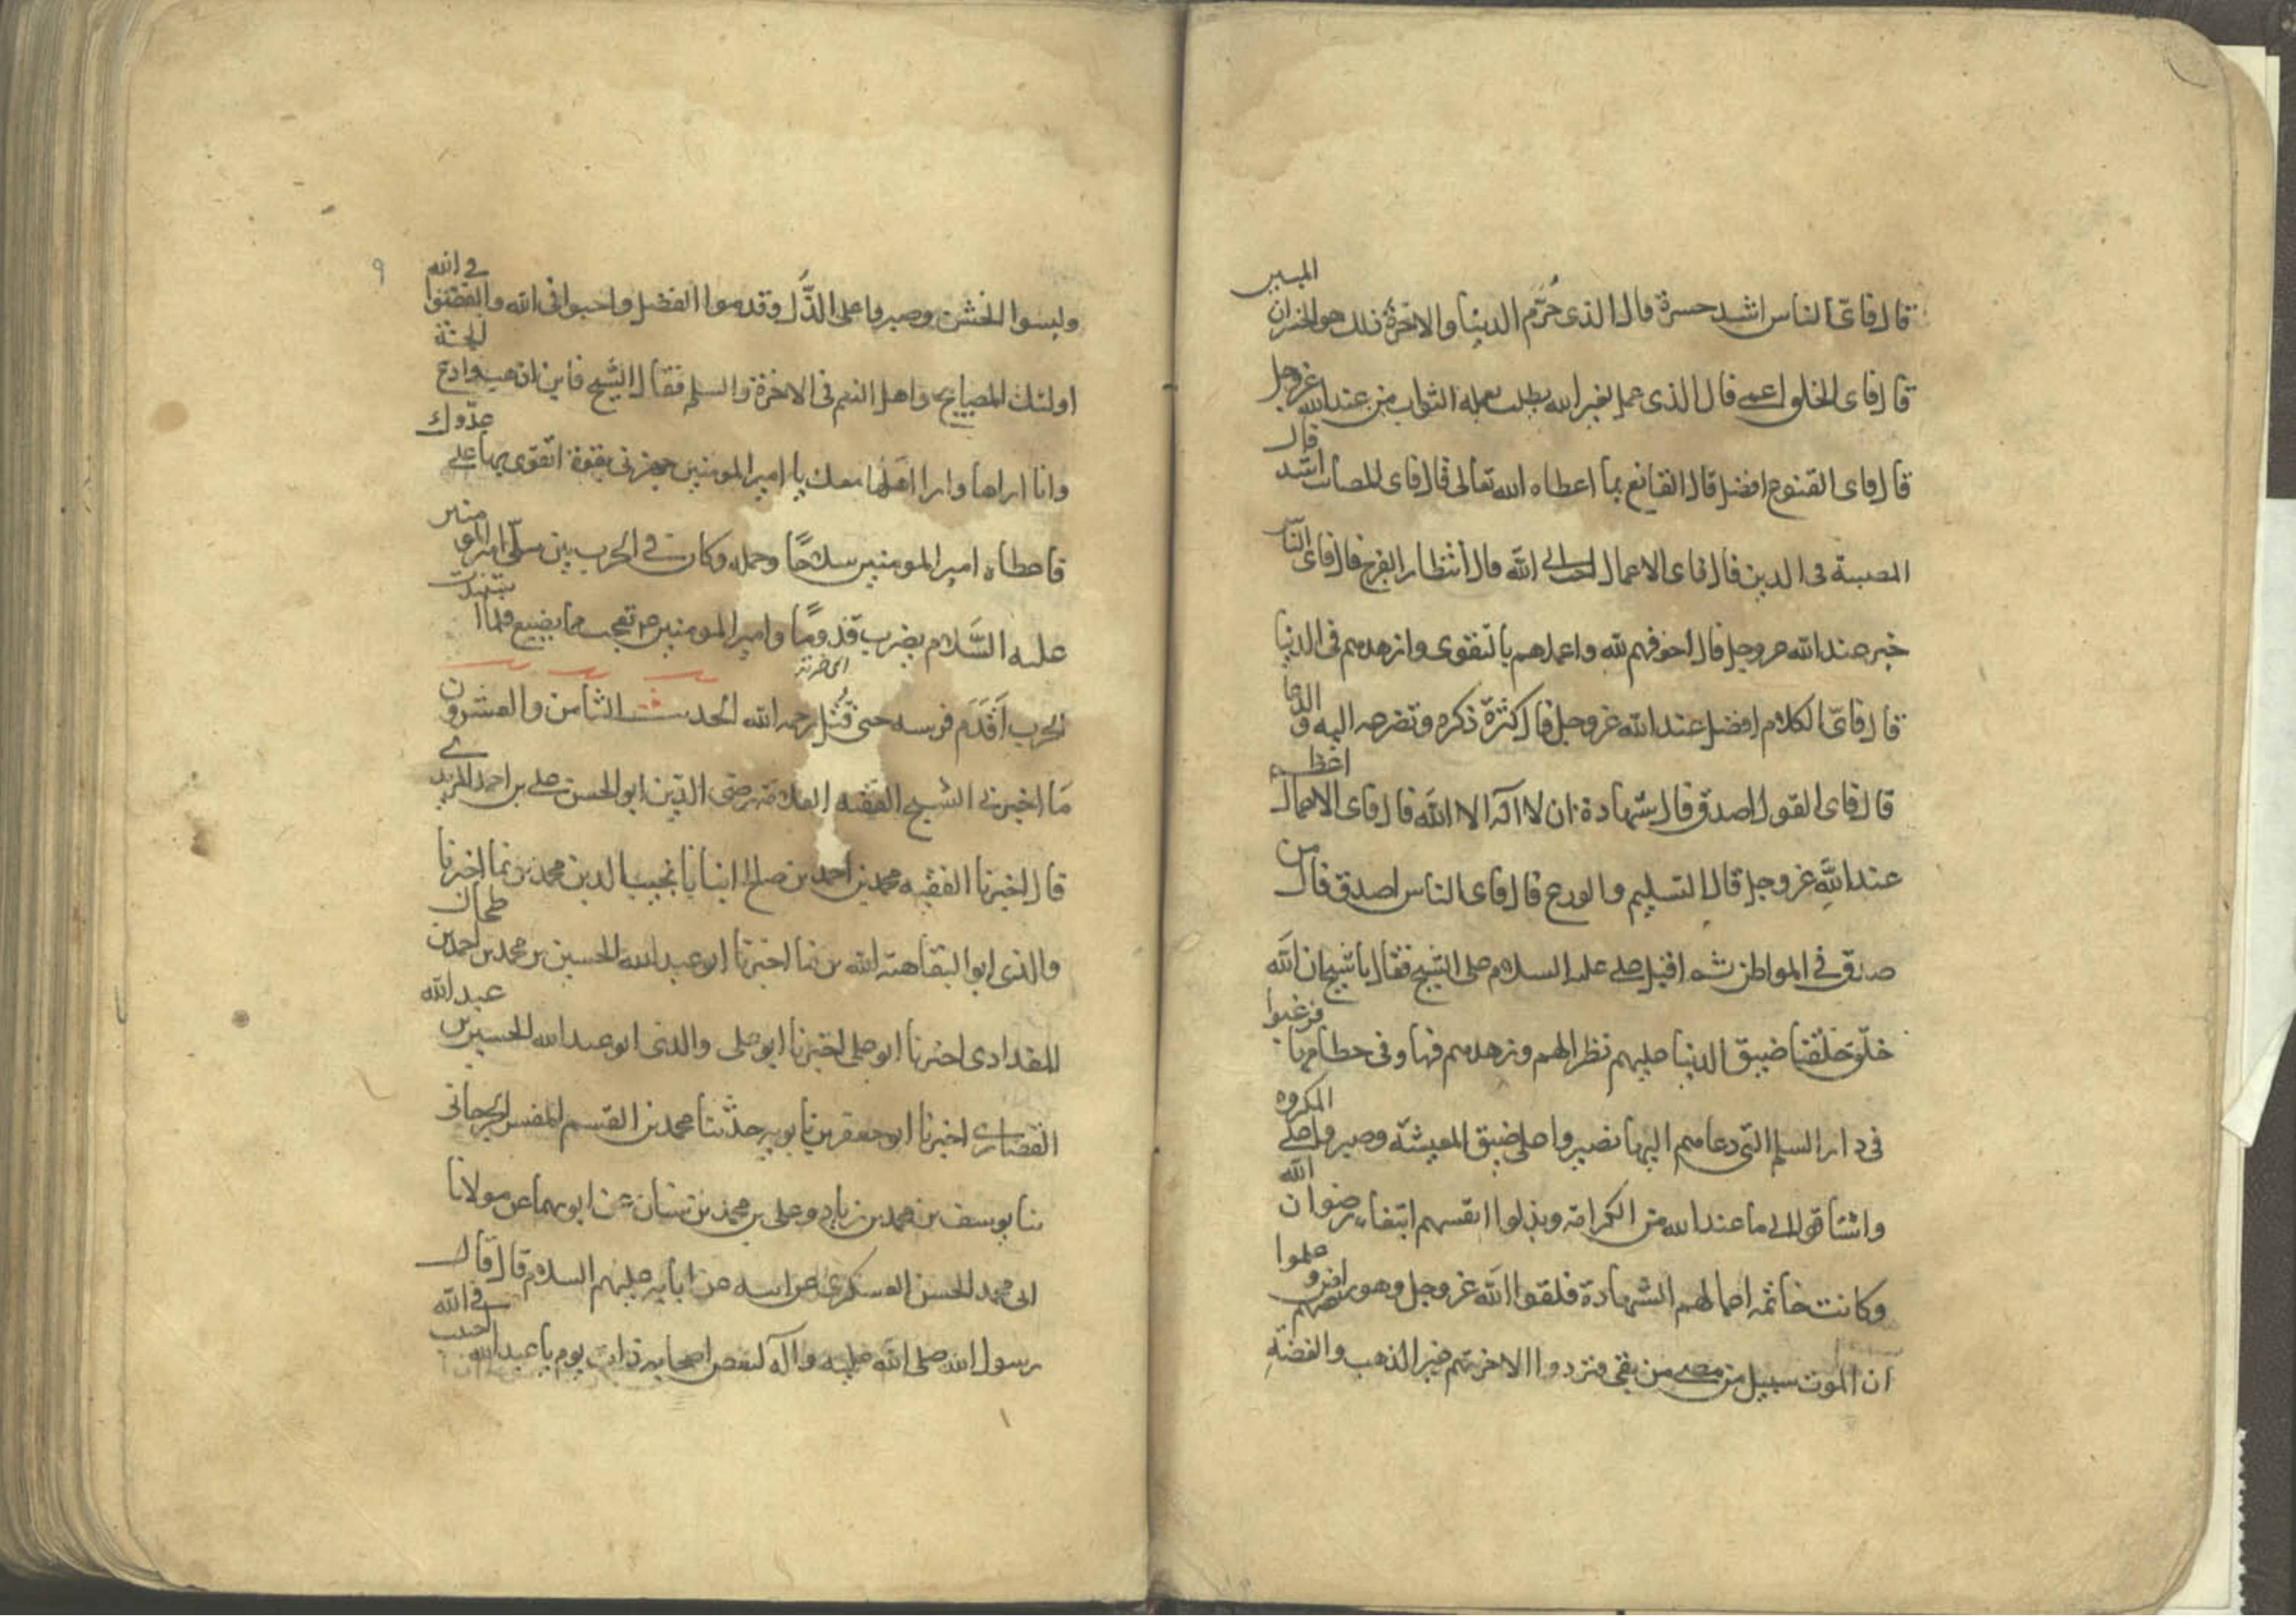 قال فاىّ الناس اشد حسرة قال الذى حُرّم الدنيا والاخرة ذلك هو الخسران المبين
قال فاى الخلق اعمى قال الذى عمل لغير الله يطلب بعمله الثواب من عند الله عز وجل
قال فاى القنوع افضل قال القانع بما اعطاه الله تعالى قال فاى المصائب اشد قال
المصيبة فى الدين قال فاى الاعمال احب الى الله قال انتظار الفرج قال فاى الناس
خير عند الله عز وجل قال اخوفهم لله واعملهم بالتقوى وازهدهم فى الدنيا
قال فاىّ الكلام افضل عند الله عز وجل قال كثرة ذكره وتضرعه اليه والدعا
قال فاى القول اصدق قال شهادة ان لا اله الا الله قال فاى الاعمال اعظم
عند الله عز وجل قال التسليم والورع قال فاى الناس اصدق قال من
صدق فى المواطن ثم اقبل على عليه السلام على الشيخ فقال يا شيخ ان الله
خلق خلقا ضيق الدنيا عليهم نظرا لهم وزهدهم فيها وفى حطامها فرغبوا
فى دار السلم التى دعاهم اليها فصبروا على ضيق المعيشة وصبروا على المكروه
واشتاقوا الى ما عند الله من الكرامة وبذلوا انفسهم ابتغاء رضوان الله
وكانت خاتمة اعمالهم الشهادة فلقوا الله عز وجل وهو عنهم راض وعلموا
ان الموت سبيل من مضى من بقى فتزودوا الاخرتهم خير الذهب والفضة
٩
ولبسوا الخشن وصبروا على الذّل وقدموا الفضل واحبوا فى الله وابغضوا فى الله
اولئك المصابيح واهل النعيم فى الاخرة والسلم فقال الشيخ فاين اذهب وادع الجنة
وانا اراها وارا اهلها معك يا امير المومنين جهزنى بقوة اتقوى بها على عدوك
فاعطاه امير المومنين سلاحًا وحمله وكان فى الحرب بين يدى امير المومنين
عليه السلام يضرب قدومًا وامير المومنين ع تعجب مما يصنع فلما اشتدت
اى ضربة
الحرب اَقدَم فرسه حتى قتل رحمه الله الحديث الثامن والعشرون
مَا اخبرنى الشيخ الفقيه العلامة رضى الدين ابو الحسن على بن احمد المزيدى
قال اخبرنا الفقيه محمد بن احمد بن صالح انبانا نجيب الدين محمد بن نما اخبرنا
والدى ابو البقا هبة الله بن نما اخبرنا ابو عبد الله الحسين بن محمد بن احمد بن طحال
المقدادى اخبرنا ابو على اخبرنا ابو على والدى ابو عبد الله الحسين بن عبد الله
الغضارى اخبرنا ابو جعفر بن بابويه حدثنا محمد بن القسم المفسر الجرجانى
ثنا يوسف بن محمد بن زياد وعلى بن محمد بن سنان عن ابويهما عن مولانا
ابى محمد الحسن العسكرى عن ابيه عن ابايه عليهم السلام قال قال
رسول الله صلى الله عليه وآله لبعض اصحابه ذات يوم يا عبد الله احبب فى الله